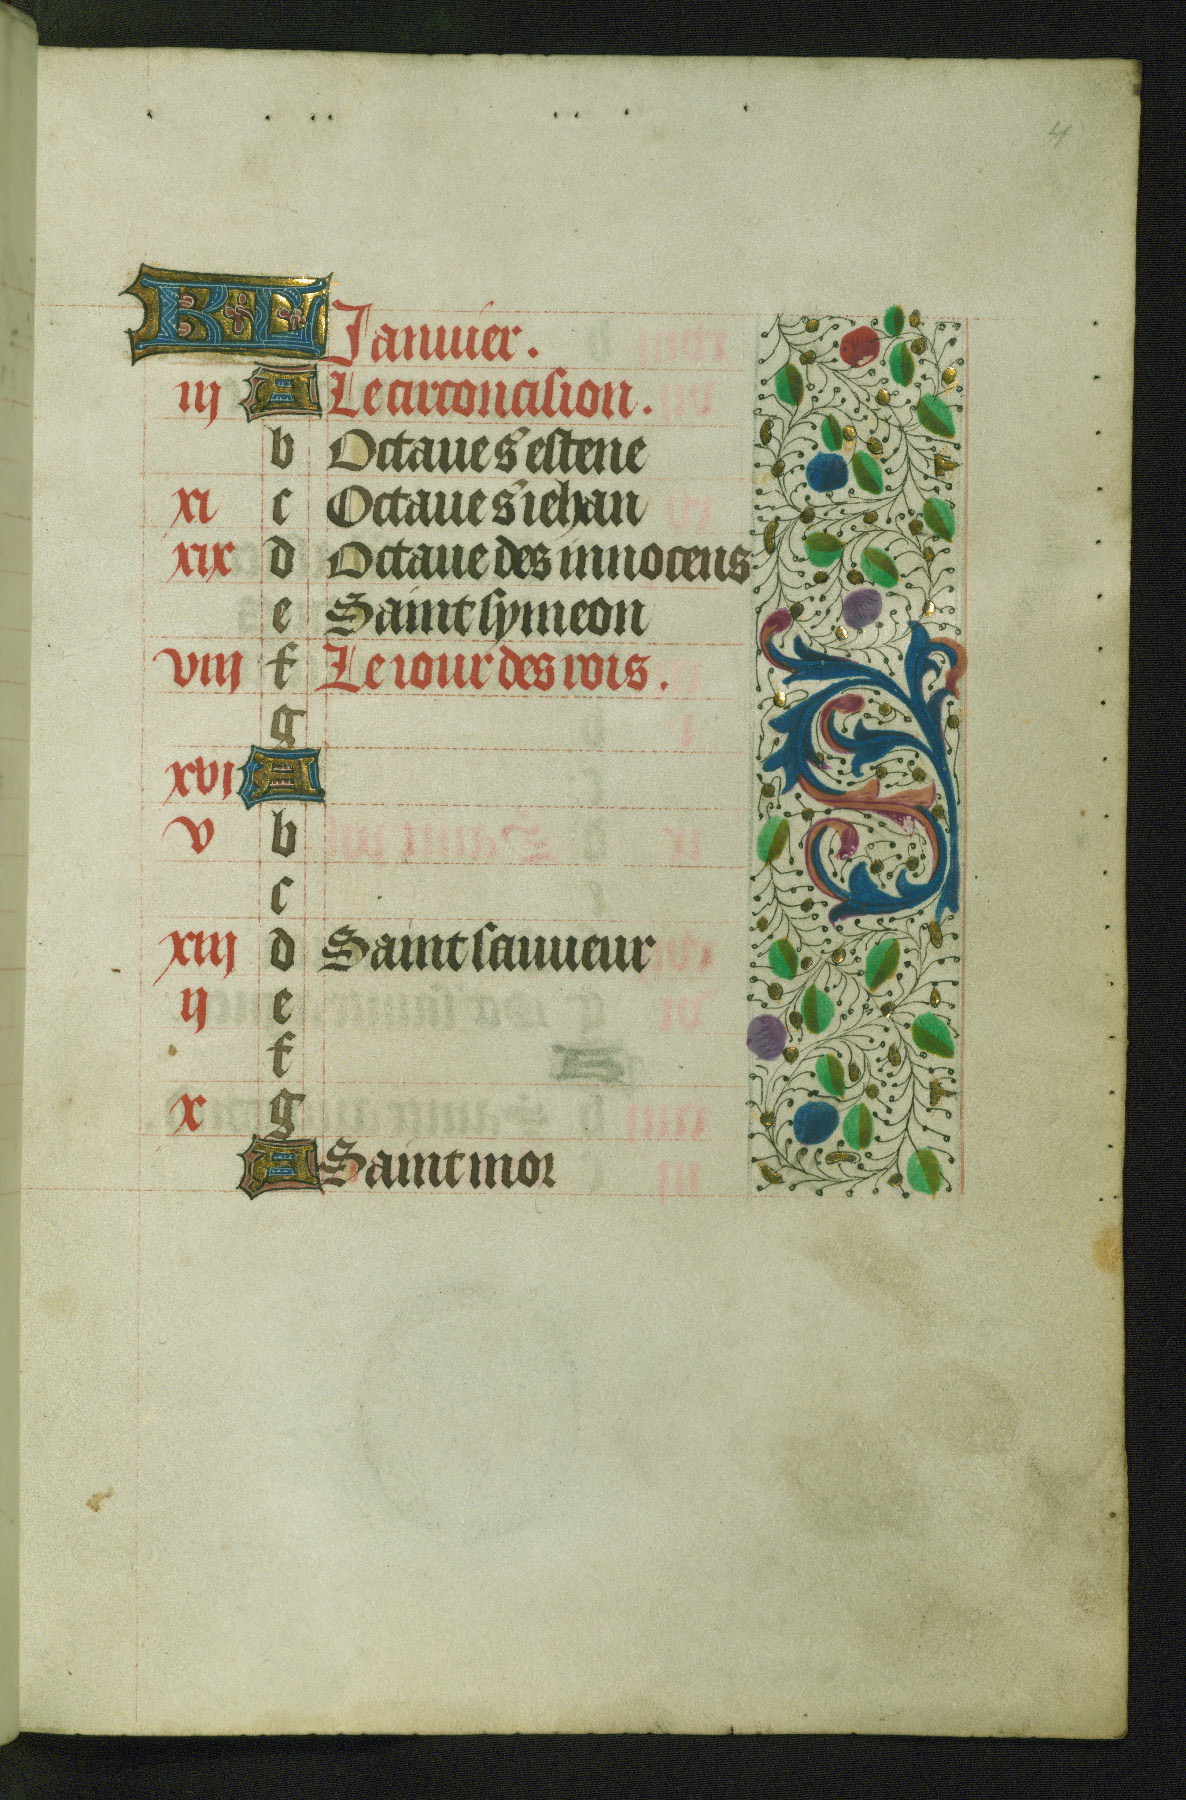 4
KL Januier.
iij A Le circoncision.
b Octaue s' estene
xi c Octaue s' iehan
xix d Octaue des innocens
e Saint symeon
viij f Le iour des rois.
g
xvi A
v b
c
xiij d Saint sauueur
ij e
f
x g
A Saint mor